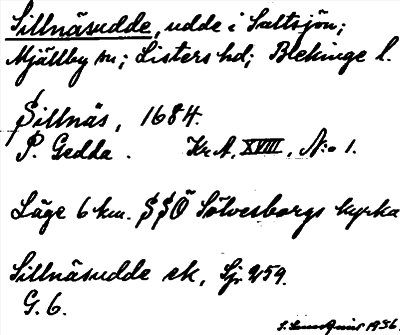 Sillnäsudde, udde i Saltsjön;
Mjällby sn; Listers hd; Blekinge l.
Sillnäs, 1684.
P. Gedda. Kr. A. XVIII. N:o 1.
Läge 6 km. SSÖ Sölvesborgs kyrka
Sillnäsudde ek, Sjr 259.
G. 6.
1936.